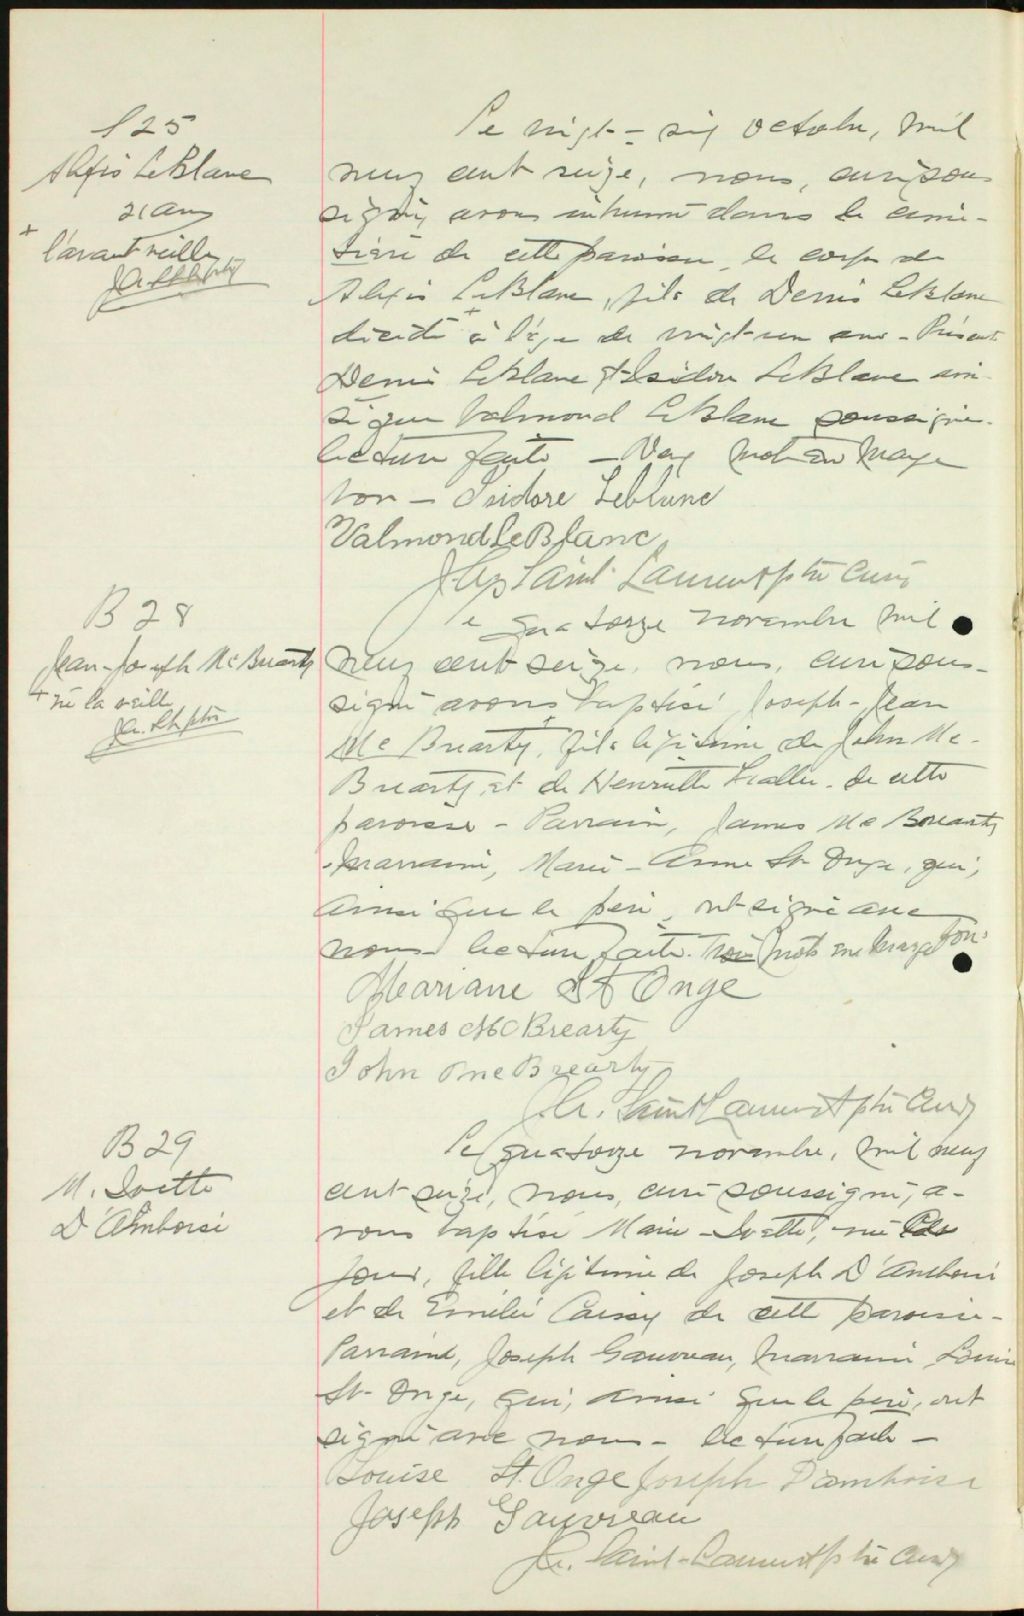 S 25
Alexis LeBlanc
21 ans
+
l'avant veille
Le vingt-six octobre, mil
neuf cent seize, nous, curé sous
signé, avons inhumé dans le cime-
tière de cette paroisse, le corps de
Alexis LeBlanc, fils de Denis LeBlanc
décédé + à l'âge de vingt-un ans - Présents
Denis LeBlanc & Isidore LeBlanc ain-
si que Valmond LeBlanc soussignés.
lecture faite - Deux mots en marge
bon - Isidore Leblanc
Valmond LeBlanc
Saint-Laurent ptre curé
B 28
Jean-Joseph McBrearty
+ né la veille
Le quatorze novembre mil
neuf cent seize, nous, curé sous-
signé avons baptisé Joseph-Jean
McBrearty, + fils légitime de John Mc-
Brearty et de Henriette de cette
paroisse - Parrain, James McBrearty
marraine, Marie-Anne St-Onge, qui,
ainsi que le père, ont signé avec
nous - lecture faite. Trois mots en marge bons
Mariane St Onge
James McBrearty
John McBrearty
Saint-Laurent ptre curé
B 29
M. Ivette
D'Amboise
Le quatorze novembre, mil neuf
cent seize, nous, curé soussigné, a-
vons baptisé Marie-Ivette, née ce
jour, fille légitime de Joseph D'Amboise
et de Emélie Caissy de cette paroisse -
Parrain, Joseph Gauvreau, marraine Louise
St-Onge, qui, ainsi que le père, ont
signé avec nous - lecture faite -
Louise St. Onge Joseph D'amboise
Joseph Gauvreau
Saint-Laurent ptre curé